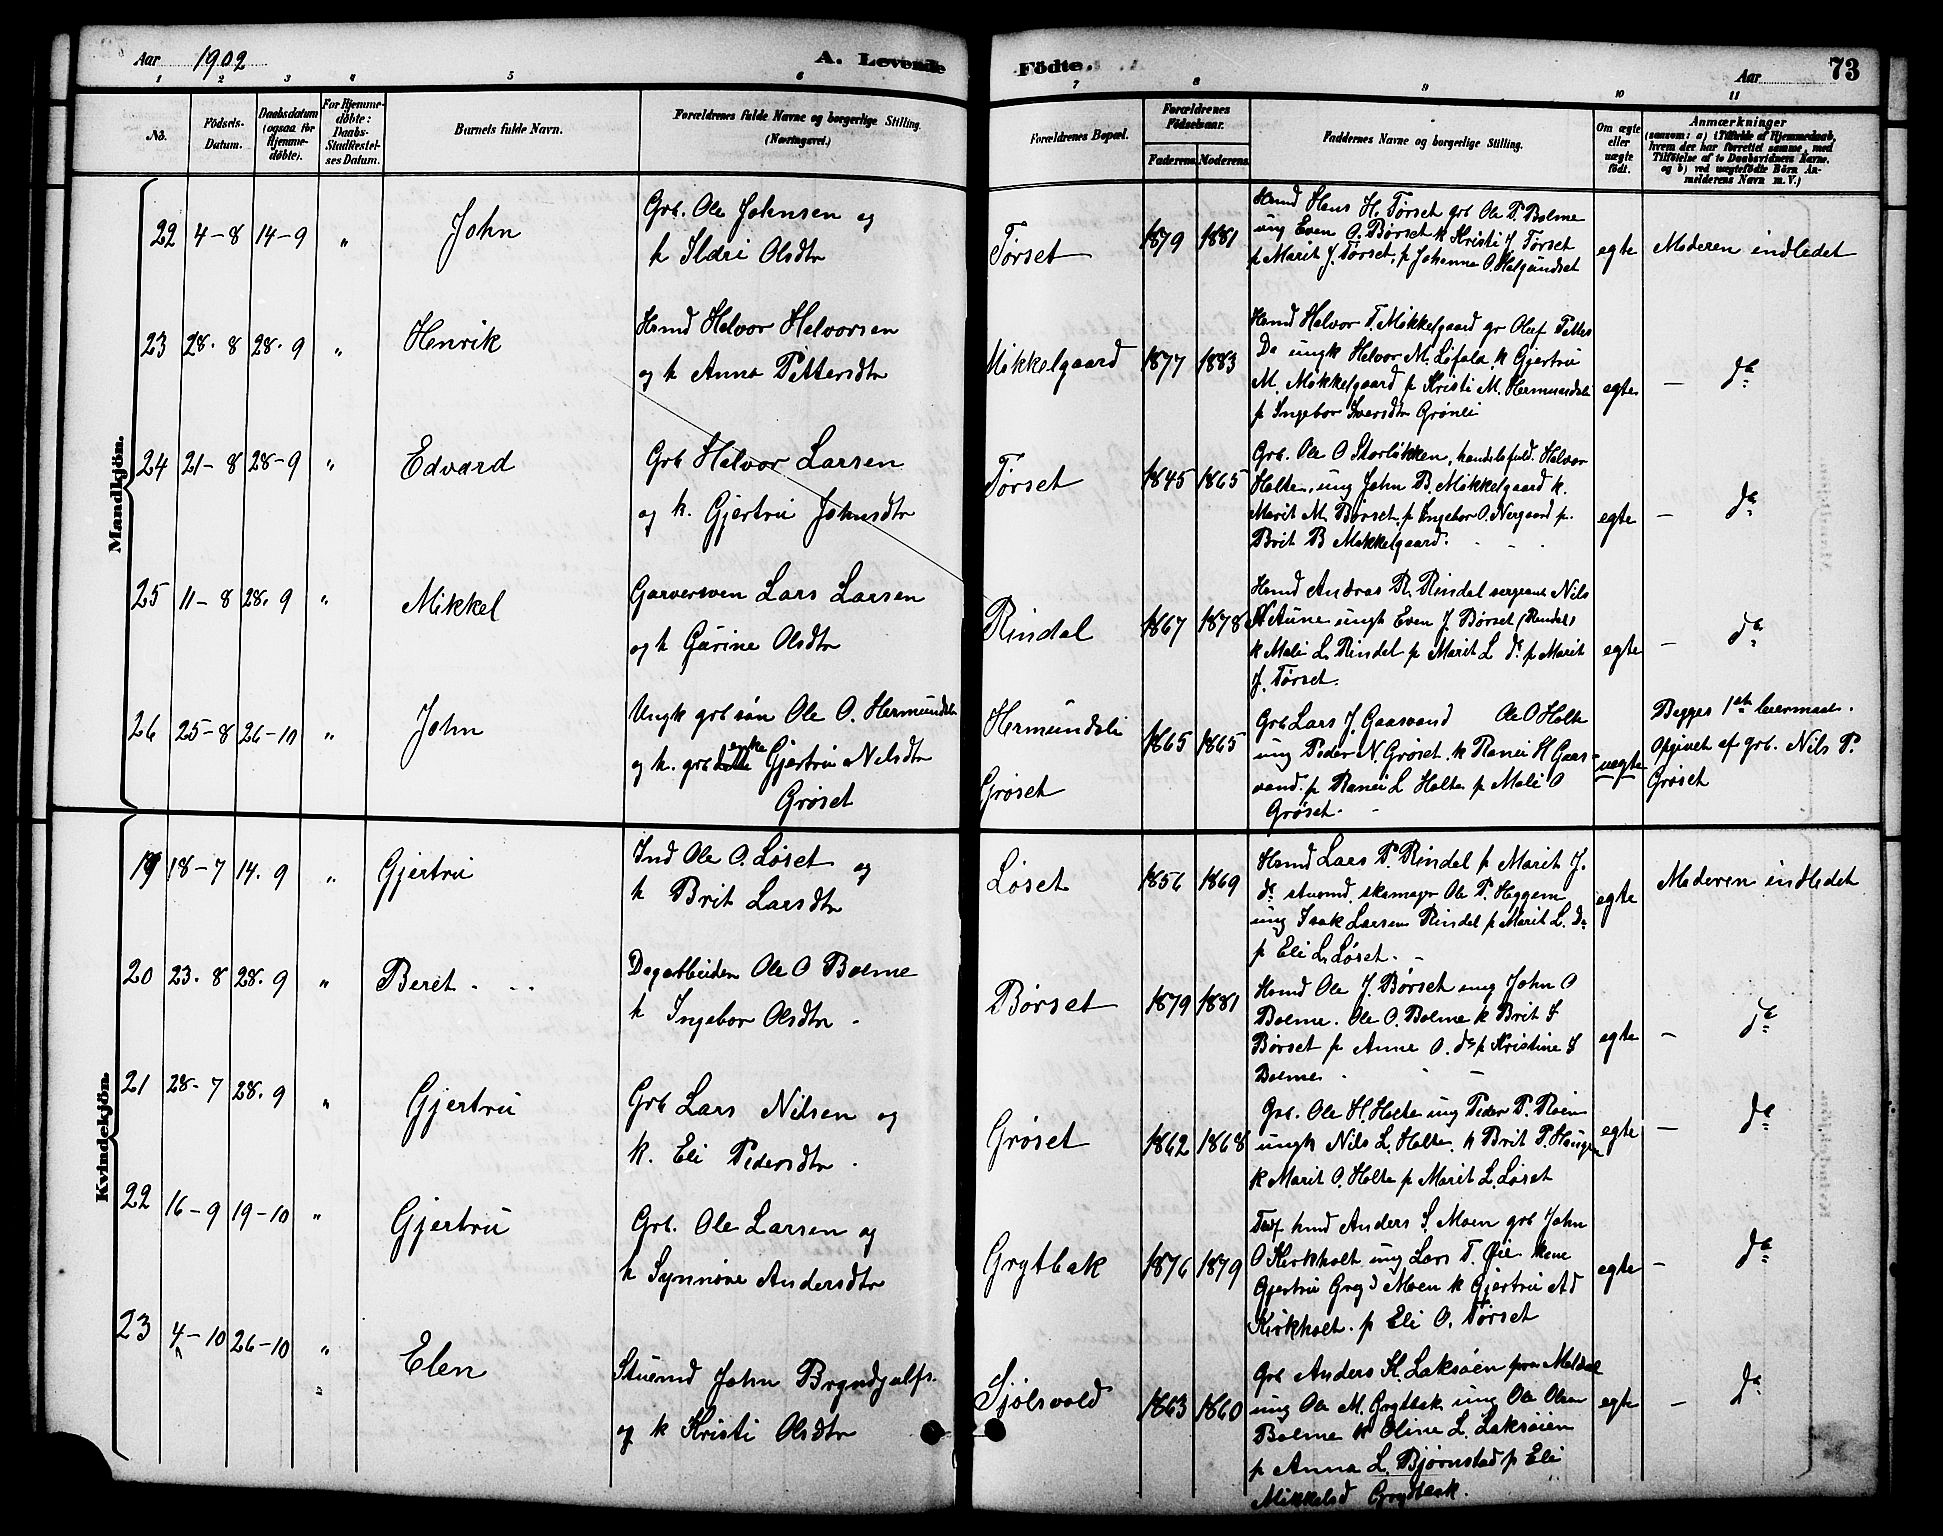 Aar 1902
A. Levende
Födte.
Aar
73
1 2 3 4 5 6 7 8 9 10 11
No.
Födsels-
Datum.
Daabsdatum
(ogsaa for
Hjemme-
döbte).
For Hjemme-
döbte:
Daabs-
Stadfæstel-
ses Datum.
Barnets fulde Navn.
Forældrenes fulde Navne og borgerlige Stilling.
(Næringsvei.)
Forældrenes Bopæl.
Forældrenes
Födselsaar.
Faderens. Moderens.
Faddernes Navne og borgerlige Stilling.
Om ægte
eller
uægte
född.
Anmærkninger
(saasom: a) i Tilfælde af Hjemmedaab,
hvem der har forrettet samme, med
Tilföielse af to Daabsvidners Navne.
og b) ved uægtefödte Börn An-
melderens Navn m. V.)
Mandkjön.
22 4-8 14-9 " John
Grb. Ole Johnsen og
k Ildri Olsdtr
Tørset 1879 1881
Hmd Hans H. Tørset grb Ole P. Bolme
ung Even O. Børset k Kristi J Tørset
p Marit J. Tørset, p Johanna O. Halgundset
egte Moderen indledet
23 28-8 28-9 " Henrik
Hmd Halvor Halvorsen
og k Anna Pettersdtr
Mikkelgaard 1877 1883
Hmd Halvor T. Mikkelgaard gr Oluf Petters
Do ungk Halvor M. Løfald k Gjertru
M. Mikkelgaard p Kristi M. Hermundsli
p Ingebor Iversdtr Grønli
egte - do
24 21-8 28-9 " Edvard
Grb Halvor Larsen
og k. Gjertru Johnsdtr
Tørset 1845 1865
Grb. Ole O Storløkken, handelsfuld. Halvor
Holte, ung John B. Mikkelgaard k.
Marit M. Børset, p Ingebor O. Nergaard p.
Brit B Mikkelgaard.
egte - do
25 11-8 28-9 " Mikkel
Garversven Lars Larsen
og k Gurine Olsdtr
Rindal 1867 1878
Hmd Andras R. Rindal sergeant Nils
N Aune ungk Even J. Børset (Rindal)
k Mali L Rindal p Marit L do p Marit
J. Tørset.
egte - do
26 25-8 26-10 " John
Ungk grb søn Ole O. Hermundsli
og k. grb enke Gjertru Nilsdtr
Grøset
Hermundsli
Grøset
1865 1865
Grb Lars J. Gaasvand Ole O Holte
ung Peder N. Grøset. k Ranei H Gaas-
vand. p Ranei L Holte p Mali O
Grøset.
uægte
Begges 1ste leiermaal.
Opgivet af grb. Nils P.
Grøset
Kvindekjön.
19 18-7 14-9 " Gjertru
Ind Ole O. Løset og
k Brit Larsdtr
Løset 1856 1869
Hmd Lars P. Rindal p Marit J.
do stuemd, skomager Ole P. Heggem
ung Isak Larsen Rindal p Marit L. Do
p Eli L. Løset.
egte Moderen indledet
20 23-8 28-9 " Beret
Dagarbeider Ole O Bolme
k Ingebor Olsdtr
Børset 1879 1881
Hmd Ole J. Børset ung John O
Bolme. Ole O. Bolme k Brit I
Børset p Anne O. do p Kristine I
Bolme
egte - do
21 28-7 28-9 " Gjertru
Grb Lars Nilsen og
k. Eli Pedersdtr
Grøset 1862 1868
Grb. Ole H. Holte ung Peder P. Moen
ungk Nils L. Holte. k Brit P. Haugen
k Marit O. Holte p Marit L. Løset
egte - do
22 16-9 19-10 " Gjertru
Grb. Ole Larsen og
k Synnøve Andersdtr
Grytbak 1876 1879
hmd Anders S. Moen grb John
O Kirkholt ung Lars T. Øie kone
Gjertru Moen k Gjertru Ad
Kirkholt. p Eli O. Tørset
egte - do
23 4-10 26-10 " Elen
Stuemd John Bryndjulfs.
og k Kristi Olsdtr
Sjølsvold 1863 1860
Grb Anders H. Laksøien fra Meldal
ung Ole M. Grytbak ung Ole Olsen
Bolme k Oline L. Laksøien
p Anna L. Bjørnstad p Eli
Mikkelsd Grytbak.
egte - do